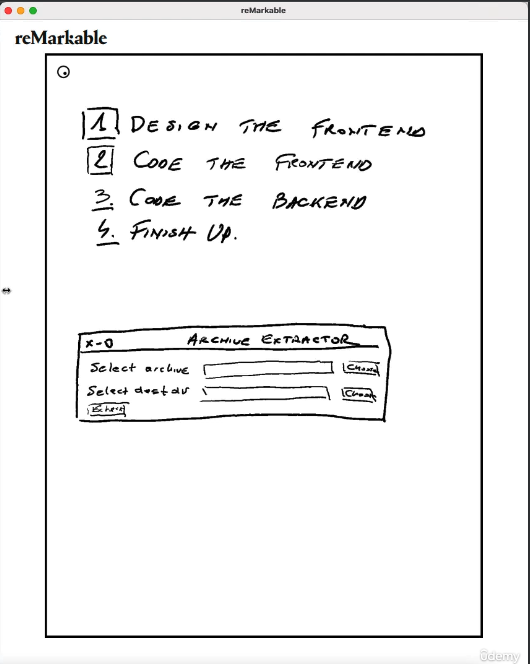 reMarkable
reMarkable
1 DESIGN THE FRONTEND
2 CODE THE FRONTEND
3. CODE THE BACKEND
4. FINISH UP.
X-O ARCHIVE EXTRACTOR
Select archive Choose
Select dest dir Choose
Extract
ûdemy